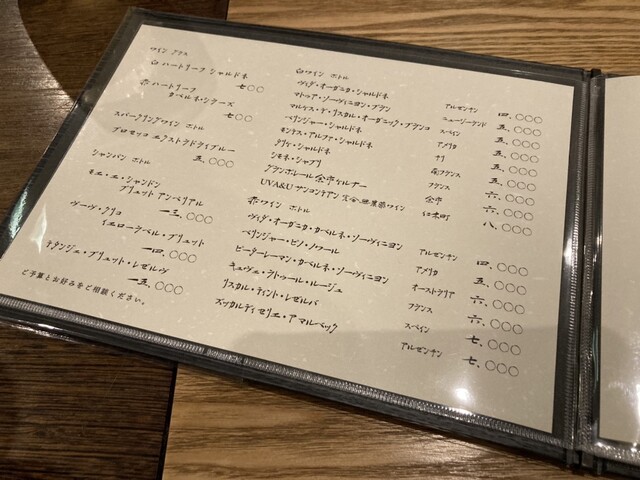 ワイン グラス
白 ハートリーフ シャルドネ 七〇〇
赤 ハートリーフ
カベルネ・シラーズ 七〇〇
スパークリングワイン ボトル
プロセッコ エクストラドライブルー 五、〇〇〇
シャンパン ボトル
モエ・エ・シャンドン
ブリュット アンペリアル 一三、〇〇〇
ヴーヴ・クリコ
イエローラベル・ブリュット 一四、〇〇〇
テタンジェ・ブリュット・レゼルヴ 一五、〇〇〇
ご予算とお好みをご相談ください。
白ワイン ボトル
ヴィダ・オーガニカ・シャルドネ アルゼンチン 四、〇〇〇
マトゥア・ソーヴィニヨン・ブラン ニュージーランド 五、〇〇〇
マルケス・デ・リスカル・オーガニック・ブランコ スペイン 五、〇〇〇
ベリンジャー・シャルドネ アメリカ 五、〇〇〇
モンテス・アルファ・シャルドネ チリ 五、〇〇〇
タリケ・シャルドネ 南フランス 五、〇〇〇
シモネ・シャブリ フランス 六、〇〇〇
グランポレール 余市ケルナー 余市 六、〇〇〇
UVA&U サンコンチアン 完全無農薬ワイン 仁木町 八、〇〇〇
赤ワイン ボトル
ヴィダ・オーガニカ・カベルネ・ソーヴィニヨン アルゼンチン 四、〇〇〇
ベリンジャー・ピノ・ノワール アメリカ 五、〇〇〇
ピーターレーマン・カベルネ・ソーヴィニヨン オーストラリア 六、〇〇〇
キュヴェ・ラトゥール・ルージュ フランス 六、〇〇〇
リスカル・ティント・レゼルバ スペイン 七、〇〇〇
ズッカルディゼリエ・アマルベック アルゼンチン 七、〇〇〇